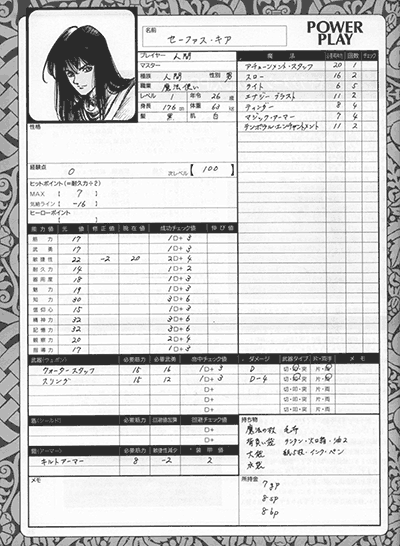 名前
セーファス・キア
POWER
PLAY
プレイヤー 人間
マスター
種族 人間 性別 男
職業 魔法使い
レベル 1 年令 26 歳
身長 176 cm 体重 63 kg
髪 黒 肌 白
性格
経験点 0 次レベル【 100 】
ヒットポイント(=耐久力÷2)
MAX 【 7 】
気絶ライン【 -16 】
ヒーローポイント
【 】
魔法 回数 チェック
アチューンメント・スタッフ 20 1
スロー 16 2
ライト 6 5
エナジー・ブラスト 11 2
ティンダー 8 4
マジック・アーマー 7 4
テンポラル・エンチャントメント 11 2
能力値 元値 修正値 現在値 成功チェック値 伸び値
筋力 17 1D+ 3
武勇 17 1D+ 3
敏捷性 22 -2 20 2D+ 4
耐久力 14 1D+ 2
器用度 18 1D+ 3
魅力 19 1D+ 3
知力 30 3D+ 6
信仰心 15 1D+ 3
精神力 32 3D+ 6
記憶力 32 3D+ 6
観察力 20 2D+ 4
指導力 17 1D+ 3
武器(ウェポン) 必要筋力 必要武勇 命中チェック値 ダメージ 武器タイプ 片・両手 メモ
クォータースタッフ 15 16 1D+ 3 D 切・叩・突 片・両
スリング 15 12 1D+ 3 D-4 切・叩・突 片・両
D+ 切・叩・突 片・両
D+ 切・叩・突 片・両
D+ 切・叩・突 片・両
盾(シールド) 必要筋力 回避値加算 回避チェック値
D+
D+
鎧(アーマー) 必要筋力 敏捷性減少 装甲値
キルトアーマー 8 -2 2
メモ
持ち物
魔法の杖 毛布
背負い袋 ランタン・火口箱・油2
大袋 紙5枚・インク・ペン
水袋
所持金
7gp
8sp
8bp